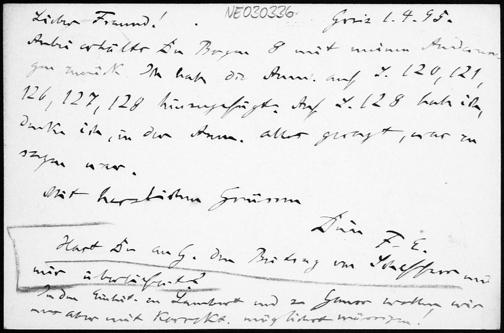 NE030336.
Lieber Freund! Graz 1.4.95.
Anbei erhältst Du Bogen 8 mit meinen Änderun-
gen zurück. Ich habe die Anm. auf S. 120, 121,
126, 127, 128 hinzugefügt. Auf S. 128 hab ich,
denke ich, in der Anm. alles gesagt, was zu
sagen war.
Mit herzlichen Grüssen
Dein F. E.
Hast Du an G. den Beitrag von
mir überschickt?
In den zu und zu wollen wir
uns aber mit Korrekt.